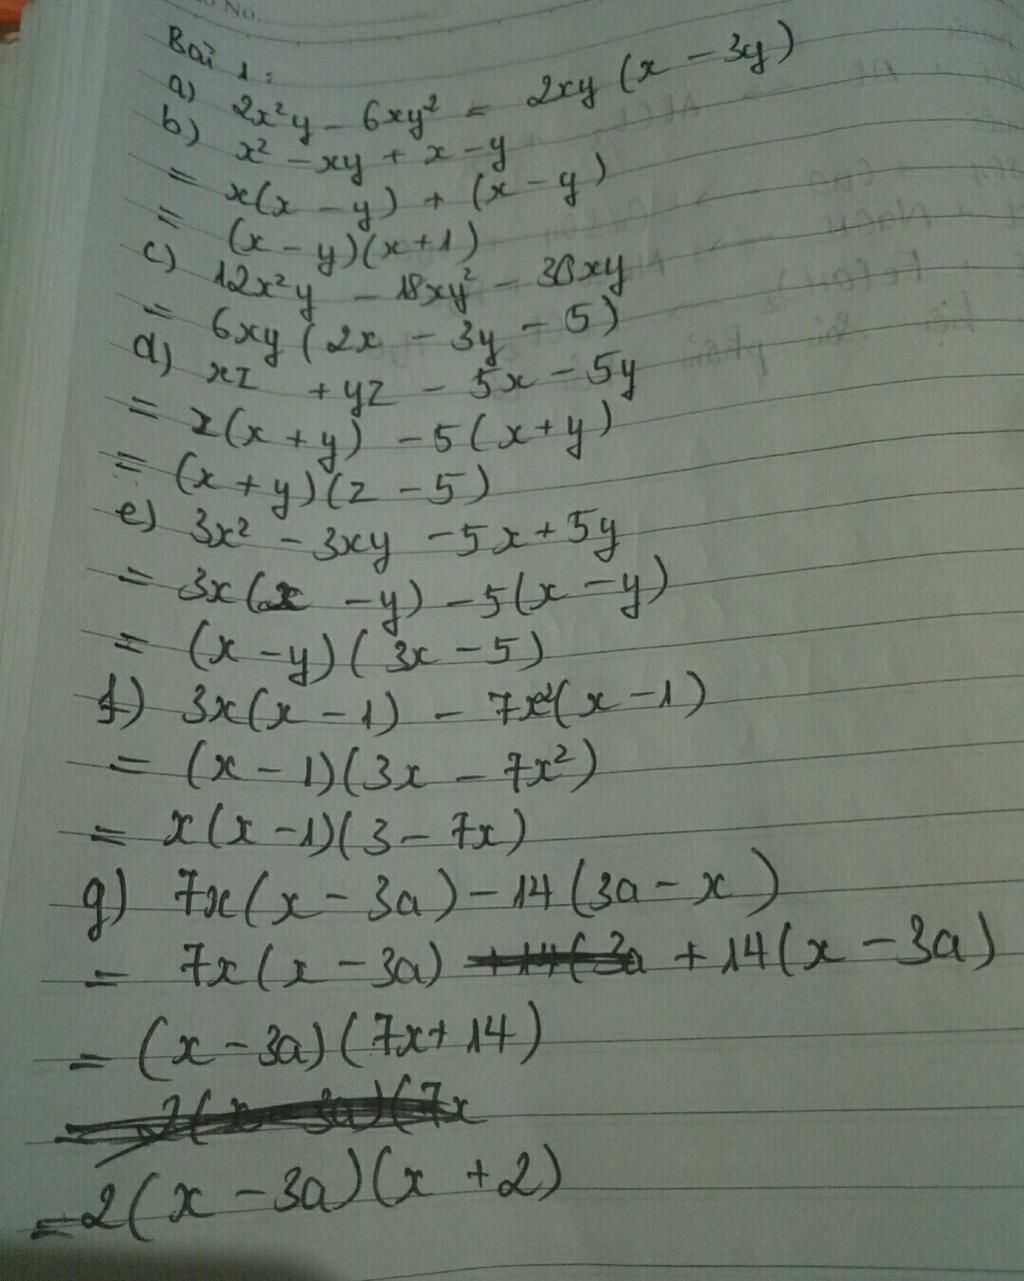 No.
Bài 1:
a) 2x²y - 6xy² = 2xy (x - 3y)
b) x² - xy + x - y
= x(x - y) + (x - y)
= (x - y)(x+1)
c) 12x²y - 18xy² - 30xy
= 6xy (2x - 3y - 5)
d) xz + yz - 5x - 5y
= z(x + y) - 5(x+y)
= (x + y)(z - 5)
e) 3x² - 3xy - 5x + 5y
= 3x(x - y) - 5(x - y)
= (x - y)(3x - 5)
f) 3x(x - 1) - 7x²(x - 1)
= (x - 1)(3x - 7x²)
= x(x - 1)(3 - 7x)
g) 7x(x - 3a) - 14(3a - x)
= 7x(x - 3a) +14(3a + 14(x - 3a)
= (x - 3a)(7x + 14)
= 7(x - 3a)(7x
= 2(x - 3a)(x + 2)